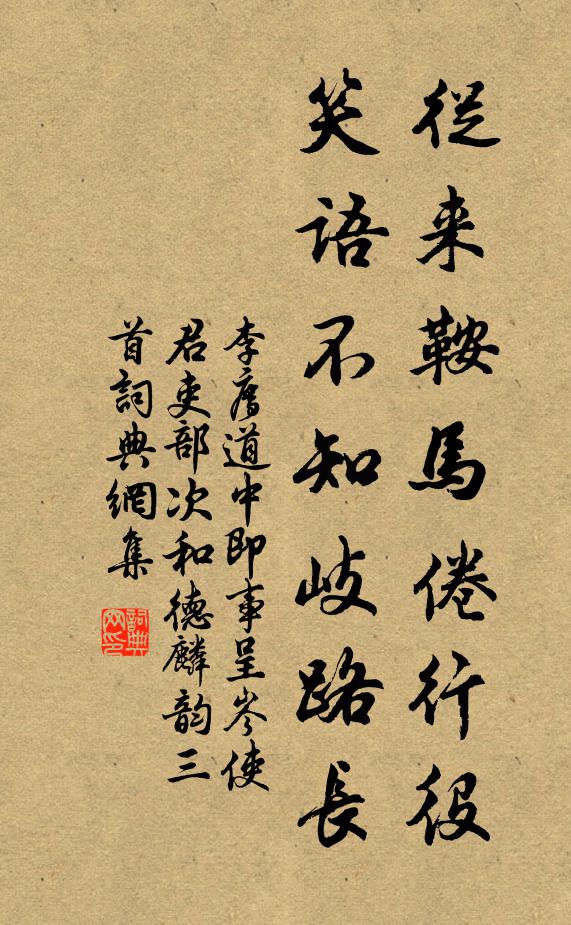 從来鞍馬倦行役
笑語不知歧路長
李廌道中即事呈岑使
君吏部次和德麟韵三
首詞典網集
詞典网印